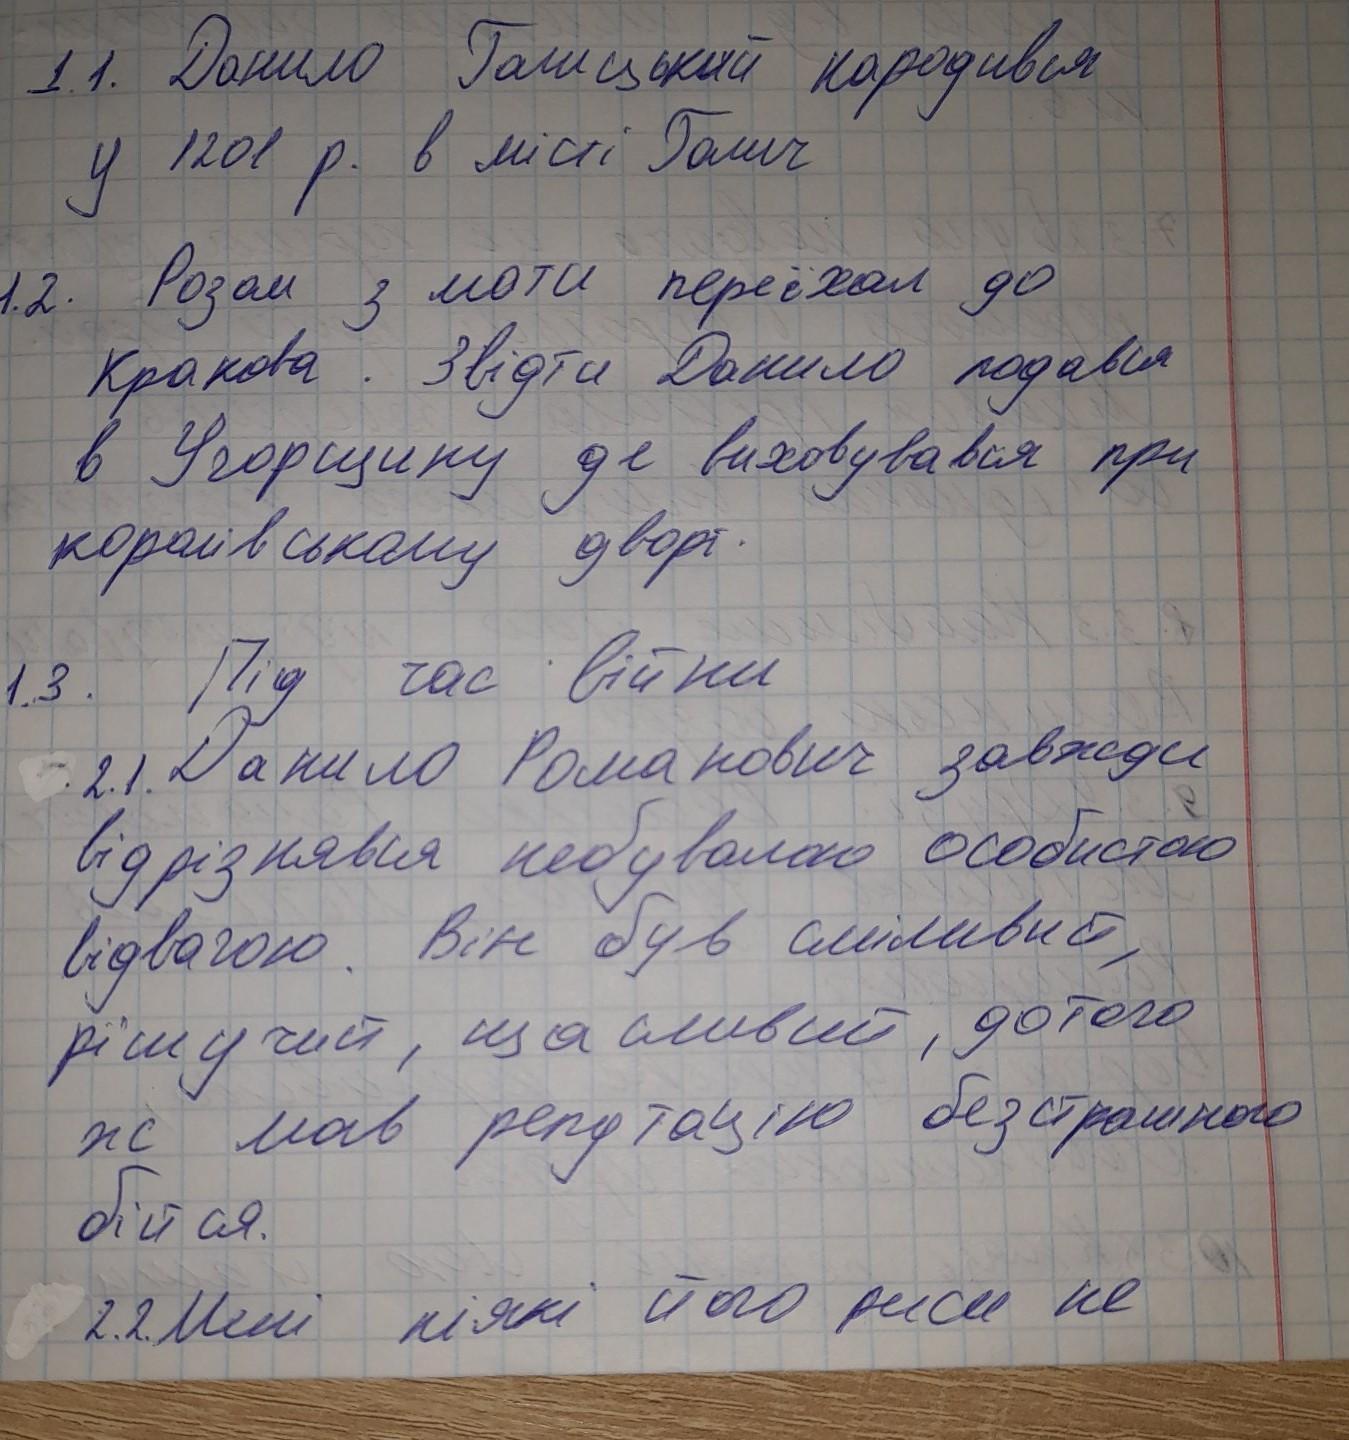 1.1. Данило Галицький народився
у 1201 р. в місті Галич
1.2. Розом з моти переїхал до
Кракова. Звідти Данило подався
в Угорщину де виховувався при
кораівському дворі.
1.3. Під час війни
2.1. Данило Романович завжди
відрізнявся небувалою особистою
відвагою. Він був сміливий,
рішучий, щасливий, до того
же мав репутацію безстрашного
бійтся.
2.2. Мені ніякі його риси не